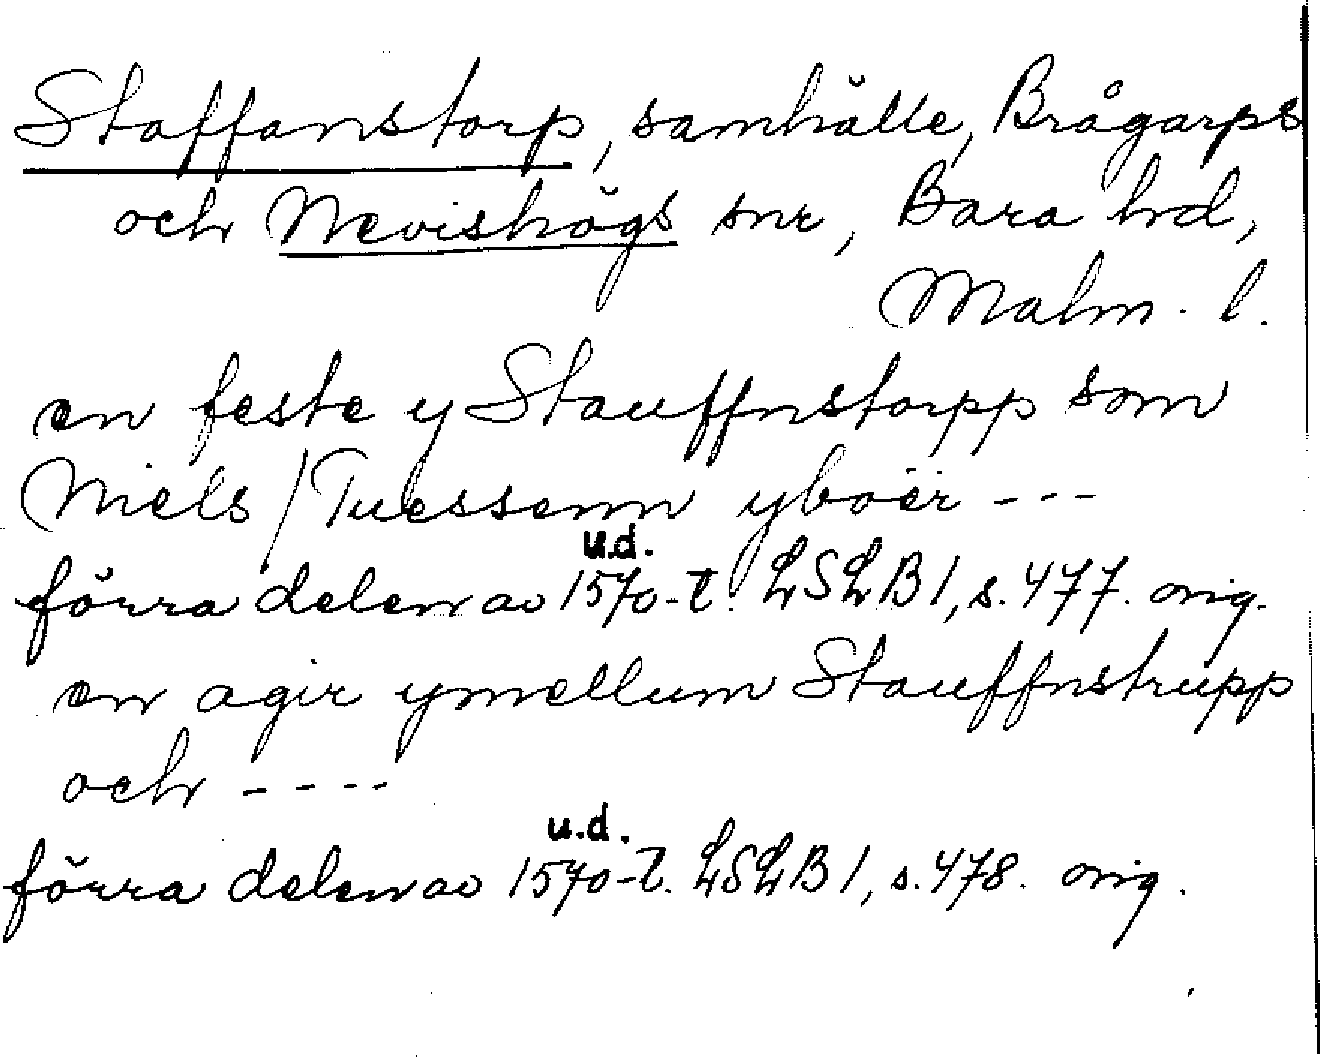 Staffanstorp, samhälle, Brågarps
och Nevishögs snr, Bara hrd,
Malm. l.
en feste y Stauffnstorpp som
Niels / Tuessenn yboer ---
u.d.
förra delen av 1570-t. LSLB 1, s. 477. orig.
en agir ymellum Stauffnstrupp
och ----
u.d.
förra delen av 1570-t. LSLB 1, s. 478. orig.